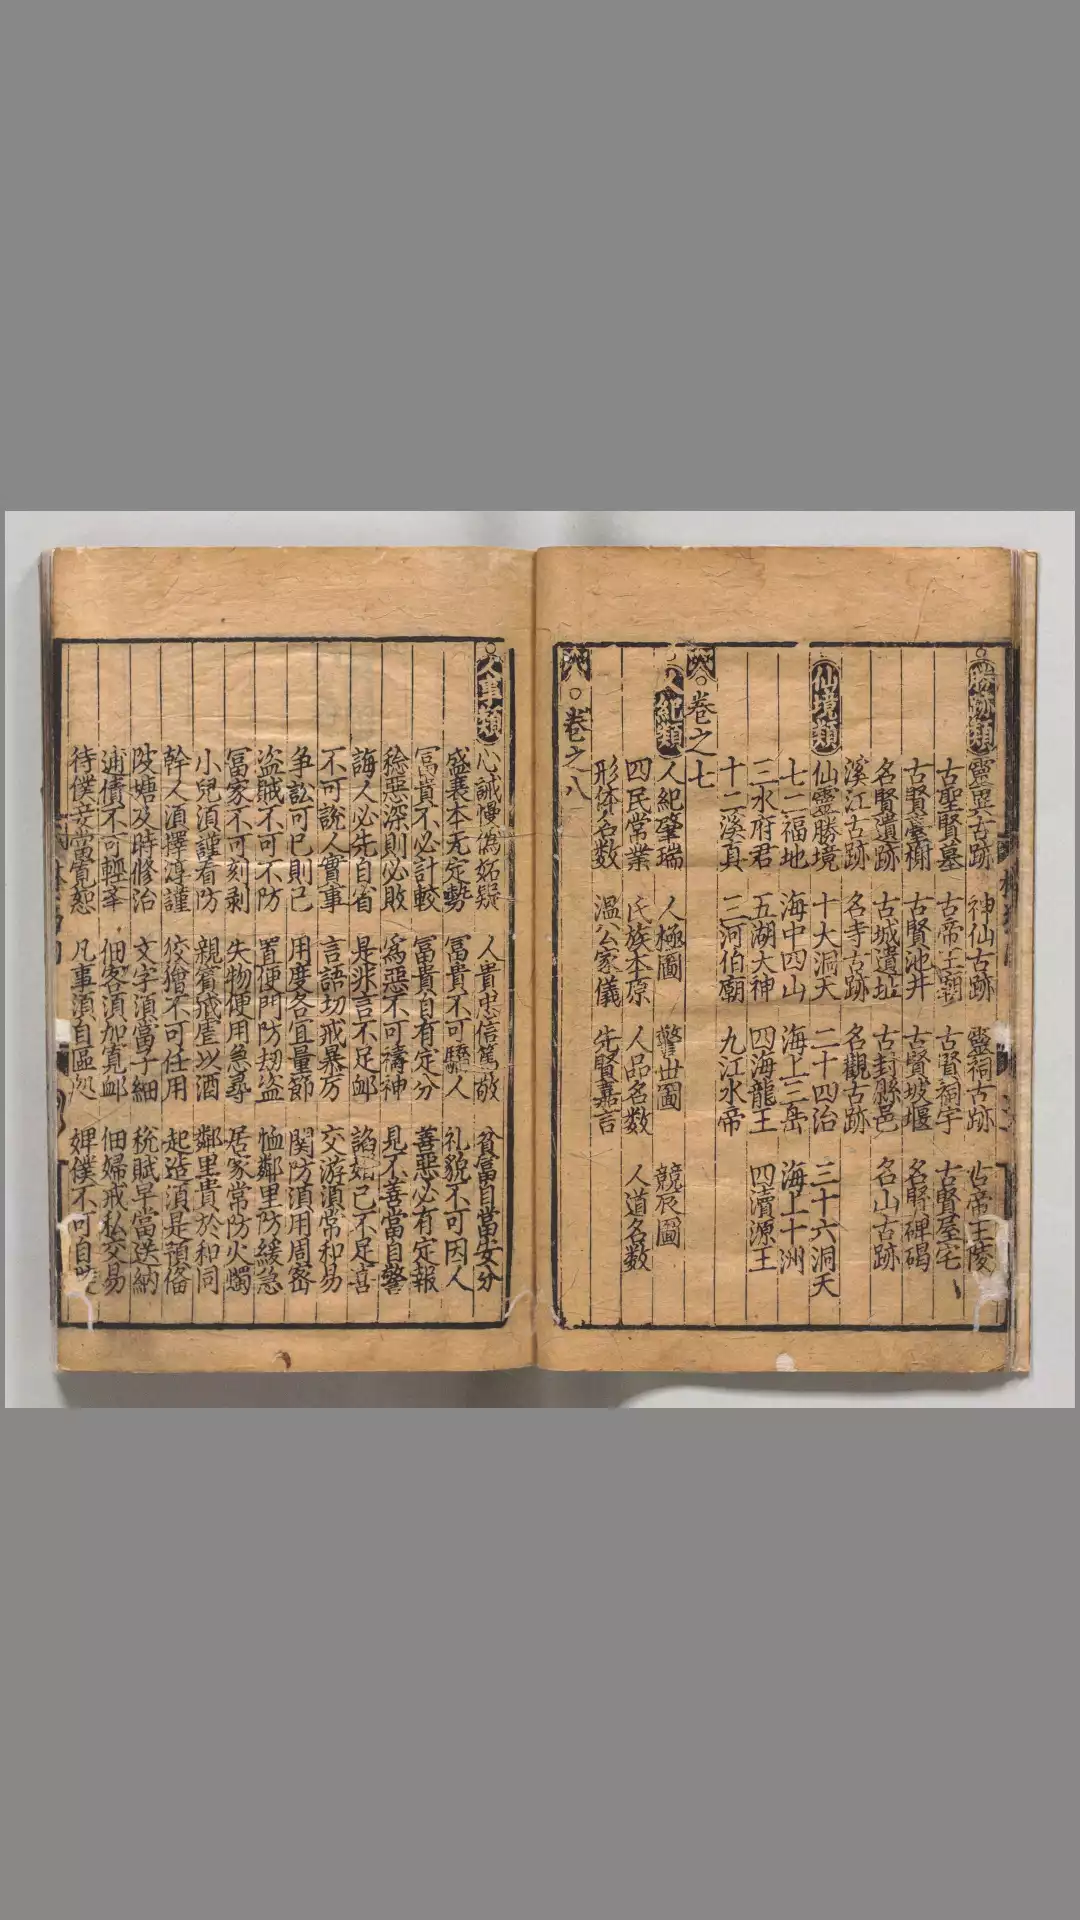 勝跡類
靈異古跡 神仙古跡 靈祠古跡 古帝王陵
古聖賢墓 古帝王廟 古賢祠宇 古賢屋宅
古賢臺榭 古賢池井 古賢坡堰 名賢碑碣
名賢遺跡 古城遺址 古封縣邑 名山古跡
溪江古跡 名寺古跡 名觀古跡
仙境類
仙靈勝境 十大洞天 二十四治 三十六洞天
七十二福地 海中四山 海上三岳 海上十洲
三水府君 五湖大神 四海龍王 四瀆源王
十二溪真 三河伯廟 九江水帝
卷之七
人紀類
人紀肇瑞 人極圖 警世圖 競辰圖
四民常業 氏族本原 人品名数 人道名数
形体名数 温公家儀 先賢嘉言
卷之八
人事類
心誠慢偽妬疑 人貴忠信篤敬 貧富自當安分
盛衰本无定勢 冨貴不可驕人 礼貌不可因人
冨貴不必計較 冨貴自有定分 善惡必有定報
稔惡深則必敗 為惡不可禱神 見不善當自警
誨人必先自省 是非言不足卹 諂 已不足喜
不可說人實事 言語切戒暴厉 交游湏常和易
争訟可已則已 用度各宜量節 関防湏用周宻
盗賊不可不防 置便門防刼盗 恤鄰里防緩急
冨家不可刻剥 失物便用急尋 居家常防火燭
小兒湏謹看防 親賓戒虐以酒 鄰里貴於和同
幹人湏擇淳謹 狡猾不可任用 起造湏是預俻
陂塘及時修治 文字湏當子細 稅賦早當送納
逋債不可輕 佃客湏加寛卹 佃婦戒私交易
待僕妾當寛恕 凡事湏自區処 婢僕不可自